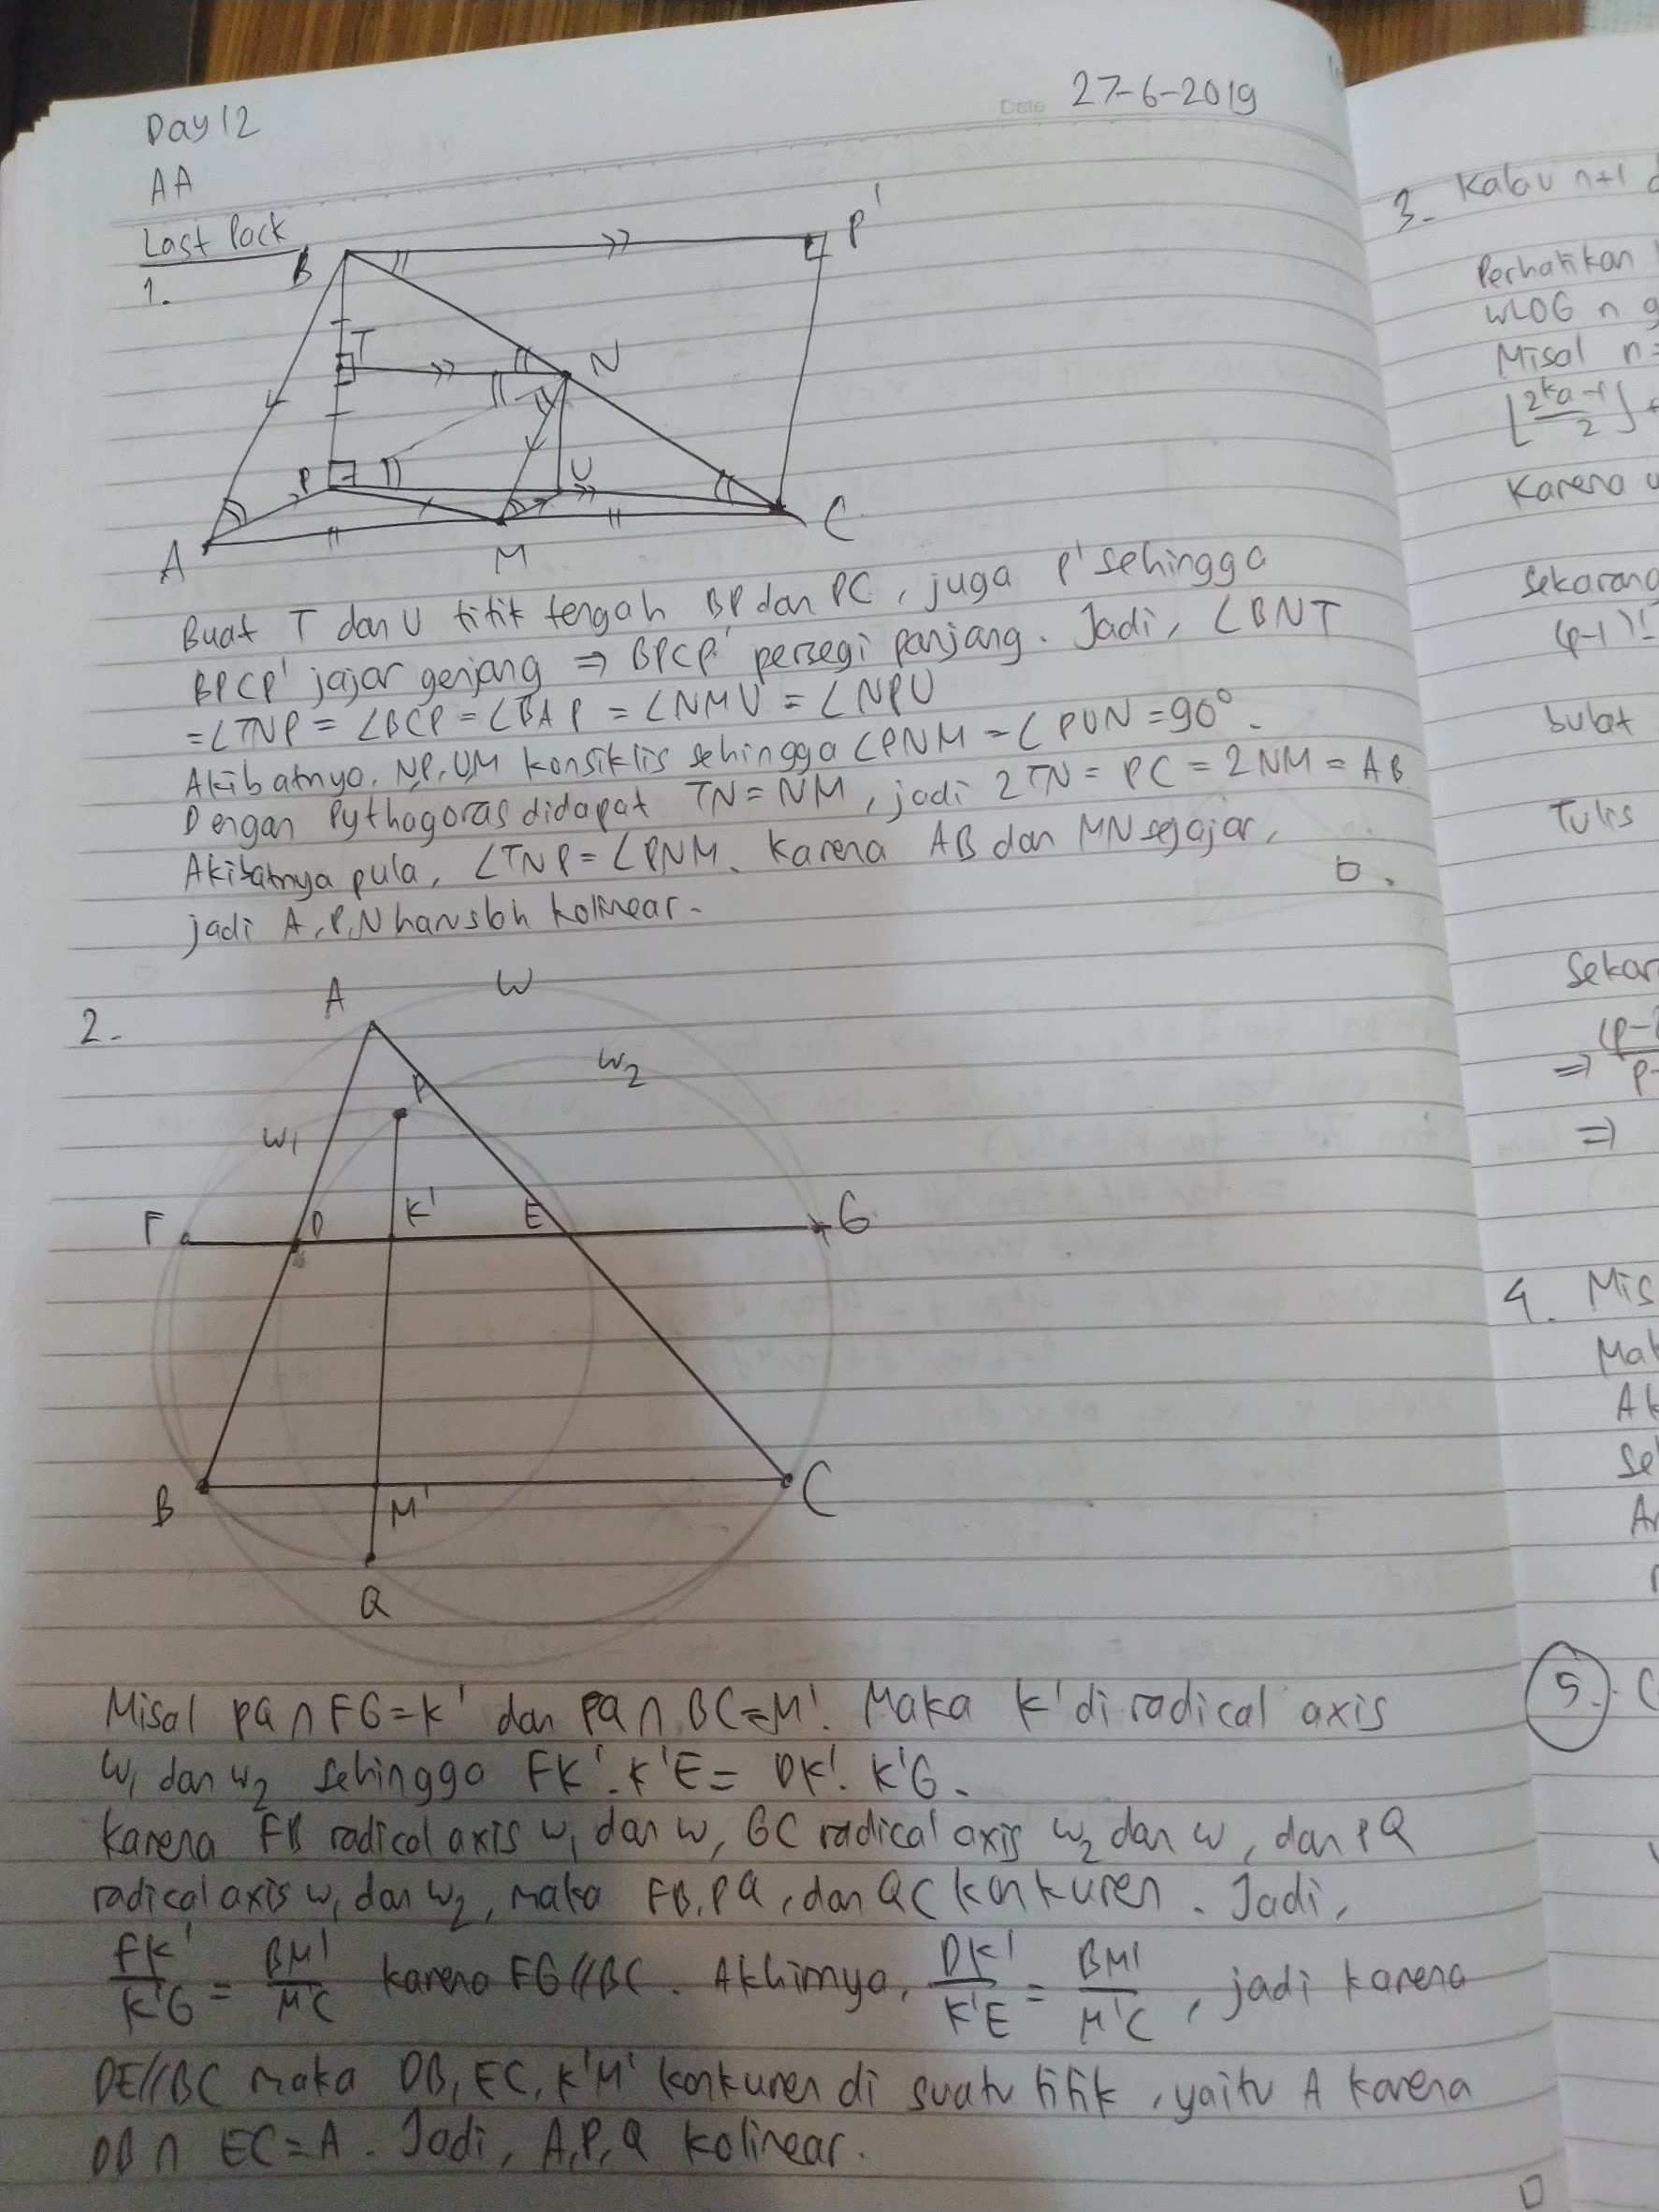 Date 27-6-2019
Day 12
AA
Last Pack
1.
B
P'
T
N
P
U
A
M
C
Buat T dan U titik tengah BP dan PC, juga P' sehingga
BPCP' jajar genjang ⇒ BPCP' persegi panjang. Jadi, ∠BNT
=∠TNP = ∠BCP = ∠BAP = ∠NMU = ∠NPU
Akibatnya, N,P,U,M konsiklis sehingga ∠PNM = ∠PUN = 90°.
Dengan Pythagoras didapat TN = NM, jadi 2TN = PC = 2NM = AB.
Akibatnya pula, ∠TNP = ∠PNM. Karena AB dan MN sejajar,
jadi A,P,N haruslah kolinear.
2.
A
W
W2
P
W1
F
D
K'
E
G
B
M'
C
Q
Misal PQ ∩ FG = K' dan PQ ∩ BC = M'. Maka K' di radical axis
W1 dan W2 sehingga FK'. K'E = DK'. K'G.
Karena FB radical axis W1 dan W, GC radical axis W2 dan W, dan PQ
radical axis W1 dan W2, maka FB, PQ, dan GC konkuren. Jadi,
FK'/K'G = BM'/M'C karena FG//BC. Akhirnya, DK'/K'E = BM'/M'C, jadi karena
DE//BC maka DB, EC, K'M' konkuren di suatu titik, yaitu A karena
DB ∩ EC = A. Jadi, A,P,Q kolinear.
3. Kalau n+1
Perhatikan
WLOG n
Misal n=
Karena
Sekarang
(p-1)!
bulat
Tulis
⇒
⇒
4. Mis
Mak
Ak
Se
5.